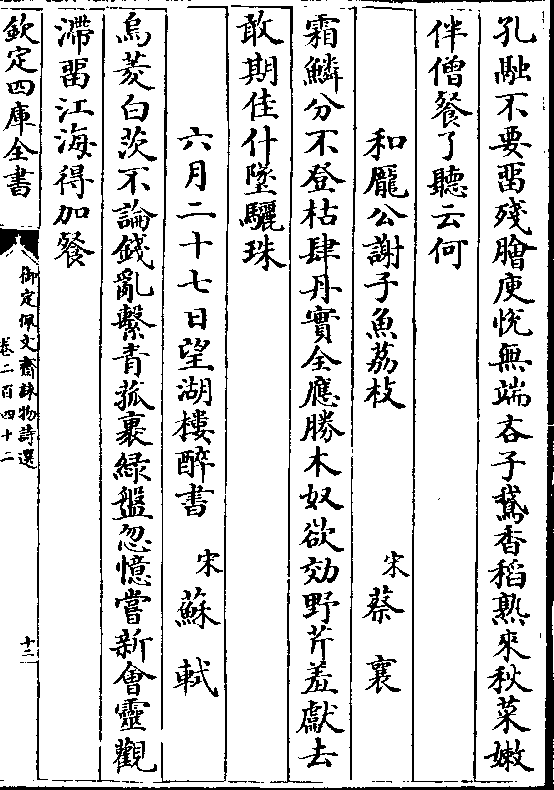 孔融不要畱殘膾庾恱無端吝子鵞香稻熟來秋菜嫩
伴僧餐了聽云何
和龎公謝子魚荔枝
宋蔡襄
霜鱗分不登枯肆丹實全應勝木奴欲効野芹羞獻去
敢期佳什墜驪珠
六月二十七日望湖樓醉書
宋蘇軾
烏菱白茨不論錢亂繫青菰裹緑盤忽憶嘗新會靈觀
滯畱江海得加餐
欽定四庫全書
御定佩文齋詠物詩選
卷二百四十二
十二